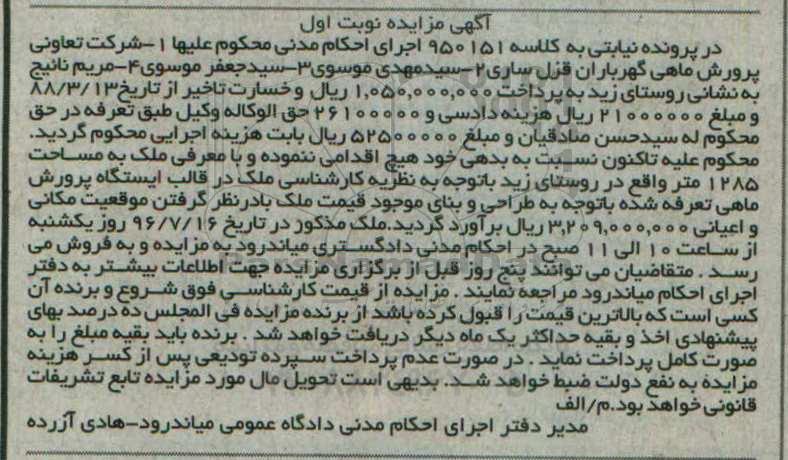 آگهی مزایده نوبت اول
در پرونده نیابتی به کلاسه ۹۵۰۱۵۱ اجرای احکام مدنی محکوم علیها ۱-شرکت تعاونی
پرورش ماهی گهرباران قزل ساری۲-سیدمهدی موسوی۳-سیدجعفر موسوی۴-مریم نائیج
به نشانی روستای زید به پرداخت ۱,۰۵۰,۰۰۰,۰۰۰ ریال و خسارت تاخیر از تاریخ۸۸/۳/۱۳
و مبلغ ۲۱۰۰۰۰۰۰ ریال هزینه دادسی و ۲۶۱۰۰۰۰۰ حق الوکاله وکیل طبق تعرفه در حق
محکوم له سیدحسن صادقیان و مبلغ ۵۲۵۰۰۰۰۰ ریال بابت هزینه اجرایی محکوم گردید.
محکوم علیه تاکنون نسبت به بدهی خود هیچ اقدامی ننموده و با معرفی ملک به مساحت
۱۲۸۵ متر واقع در روستای زید باتوجه به نظریه کارشناسی ملک در قالب ایستگاه پرورش
ماهی تعرفه شده باتوجه به طراحی و بنای موجود قیمت ملک بادرنظر گرفتن موقعیت مکانی
و اعیانی ۳,۲۰۹,۰۰۰,۰۰۰ ریال برآورد گردید.ملک مذکور در تاریخ ۹۶/۷/۱۶ روز یکشنبه
از ساعت ۱۰ الی ۱۱ صبح در احکام مدنی دادگستری میاندرود به مزایده و به فروش می
رسد . متقاضیان می توانند پنج روز قبل از برگزاری مزایده جهت اطلاعات بیشتر به دفتر
اجرای احکام میاندرود مراجعه نمایند . مزایده از قیمت کارشناسی فوق شروع و برنده آن
کسی است که بالاترین قیمت را قبول کرده باشد از برنده مزایده فی المجلس ده درصد بهای
پیشنهادی اخذ و بقیه حداکثر یک ماه دیگر دریافت خواهد شد . برنده باید بقیه مبلغ را به
صورت کامل پرداخت نماید . در صورت عدم پرداخت سپرده تودیعی پس از کسر هزینه
مزایده به نفع دولت ضبط خواهد شد. بدیهی است تحویل مال مورد مزایده تابع تشریفات
قانونی خواهد بود.م/الف
مدیر دفتر اجرای احکام مدنی دادگاه عمومی میاندرود-هادی آزرده